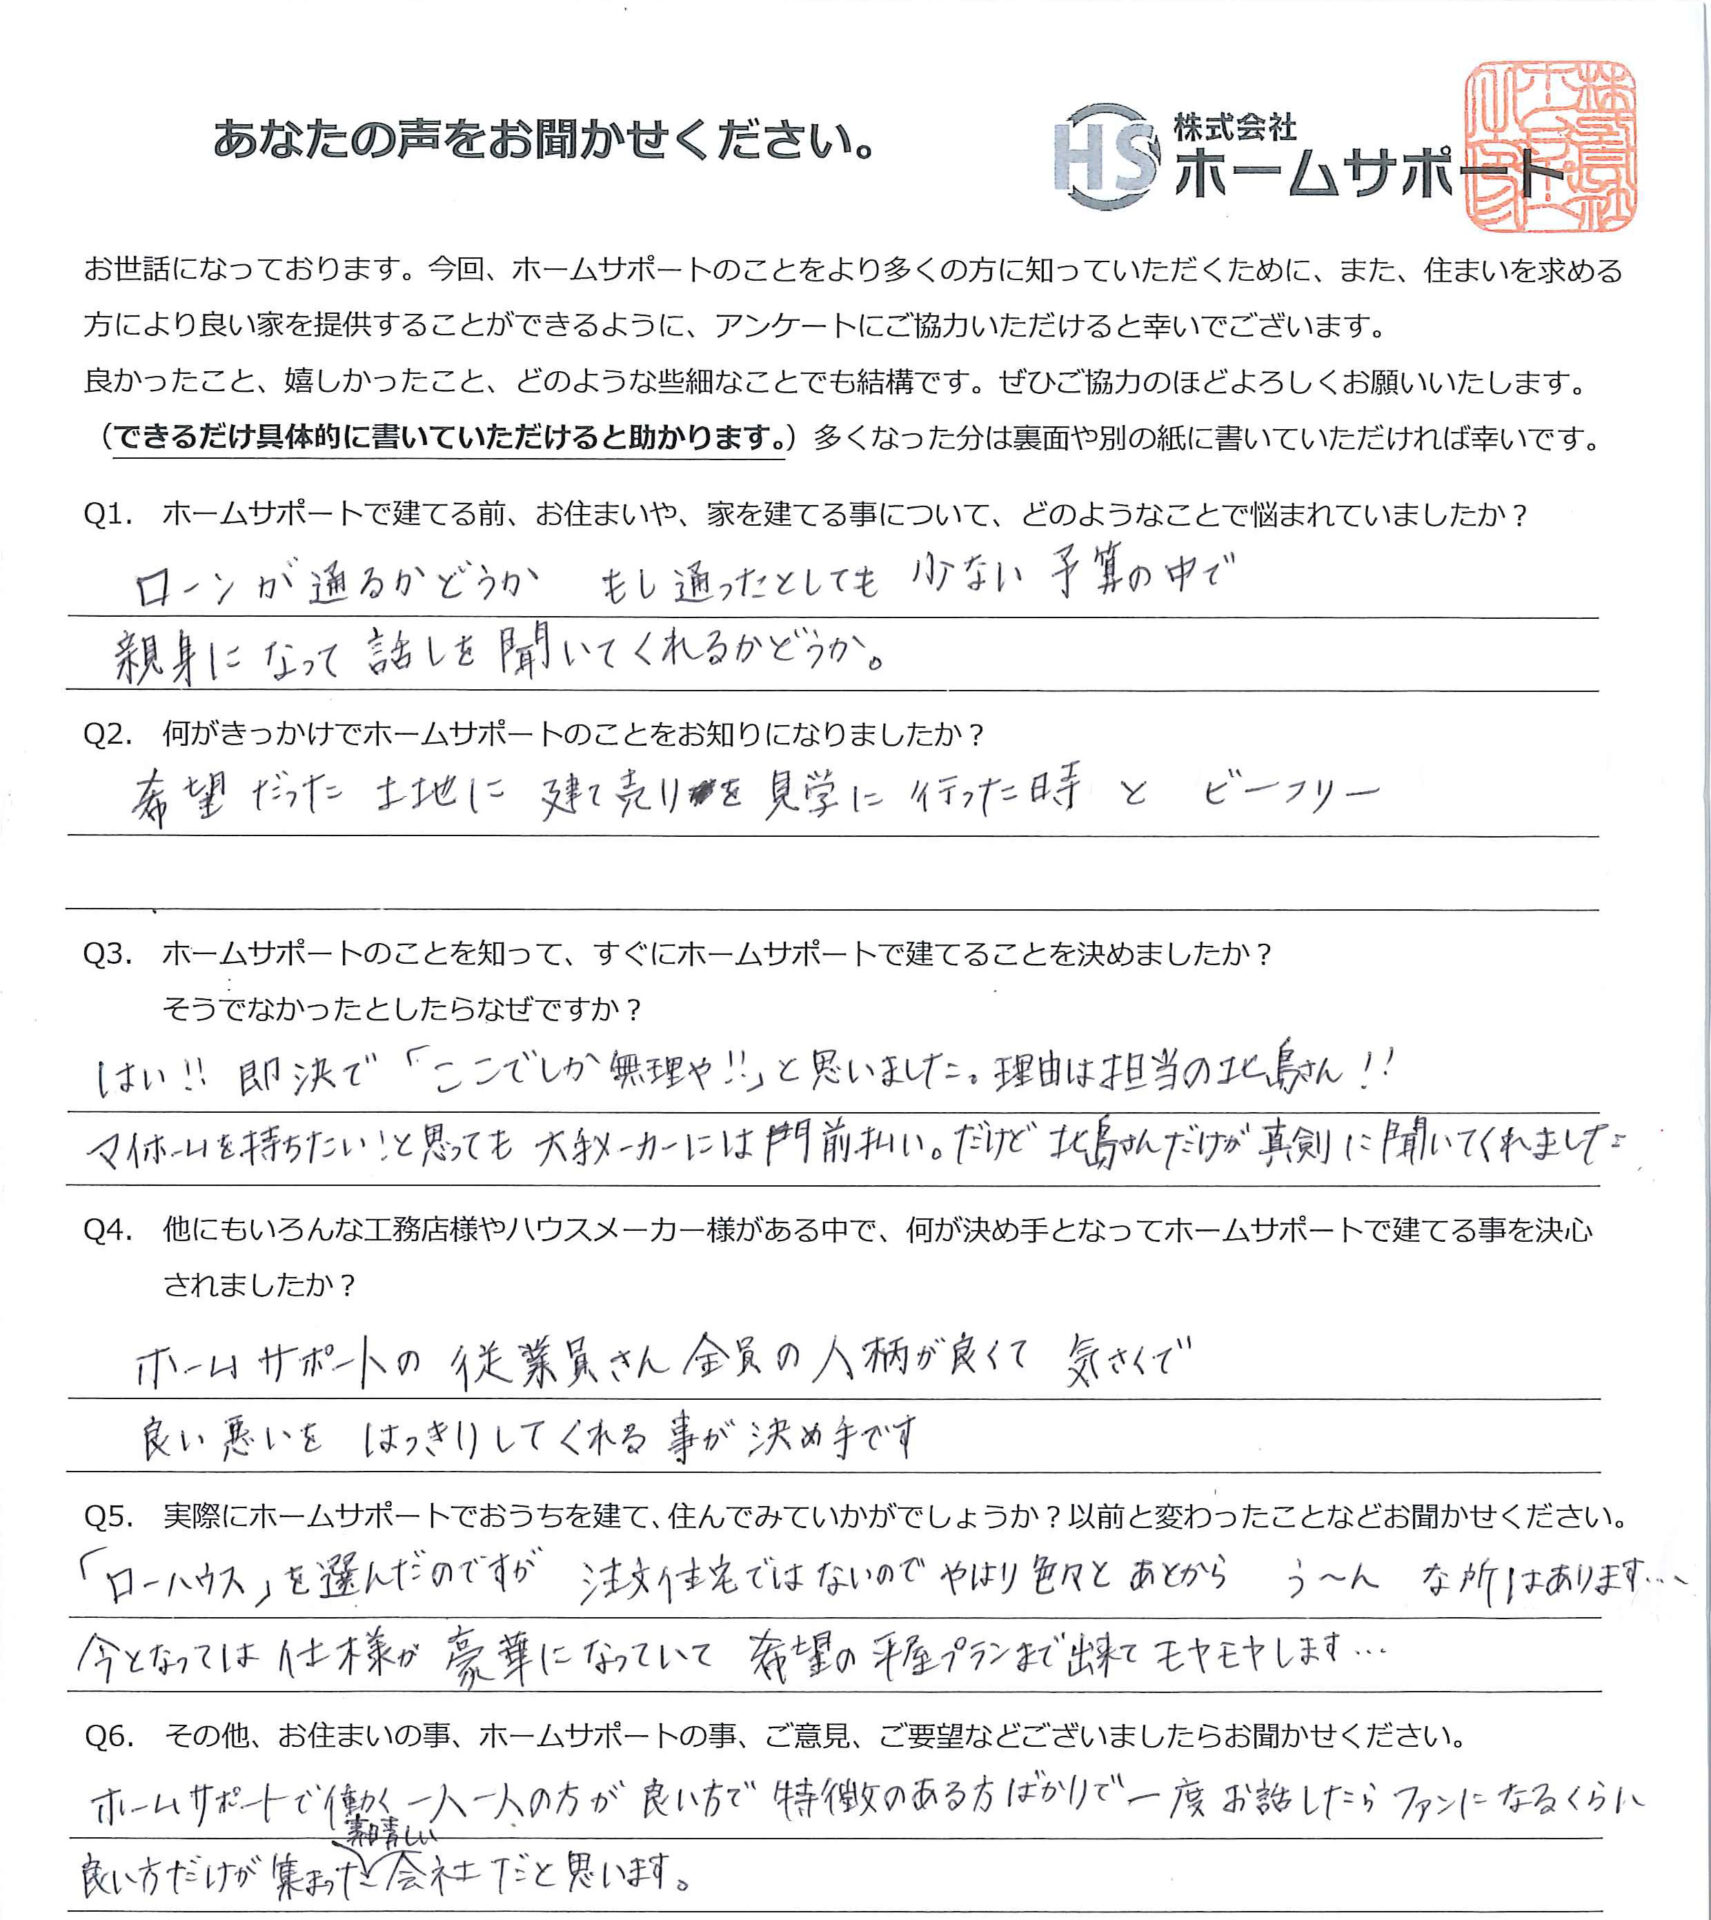 あなたの声をお聞かせください。
HS 株式会社
ホームサポート
お世話になっております。今回、ホームサポートのことをより多くの方に知っていただくために、また、住まいを求める
方により良い家を提供することができるように、アンケートにご協力いただけると幸いでございます。
良かったこと、嬉しかったこと、どのような些細なことでも結構です。ぜひご協力のほどよろしくお願いいたします。
（できるだけ具体的に書いていただけると助かります。）多くなった分は裏面や別の紙に書いていただければ幸いです。
Q1. ホームサポートで建てる前、お住まいや、家を建てる事について、どのようなことで悩まれていましたか？
ローンが通るかどうか もし通ったとしても 少ない予算の中で
親身になって話しを聞いてくれるかどうか。
Q2. 何がきっかけでホームサポートのことをお知りになりましたか？
希望だった 土地に 建て売りを見学に行った時 と ビーフリー
Q3. ホームサポートのことを知って、すぐにホームサポートで建てることを決めましたか？
そうでなかったとしたらなぜですか？
はい!! 即決で「ここでしか無理や!!」と思いました。理由は担当の北島さん!!
マイホームを持ちたい!と思っても 大手メーカーには門前払い。だけど 北島さんだけが真剣に聞いてくれました。
Q4. 他にもいろんな工務店様やハウスメーカー様がある中で、何が決め手となってホームサポートで建てる事を決心
されましたか？
ホームサポートの 従業員さん全員の人柄が良くて 気さくで
良い悪いを はっきりしてくれる事が決め手です
Q5. 実際にホームサポートでおうちを建て、住んでみていかがでしょうか？以前と変わったことなどお聞かせください。
「ローハウス」を選んだのですが 注文住宅ではないので やはり色々と あとから う〜ん な所はあります…、
今となっては 仕様が 豪華になっていて 希望の平屋プランまで出来て モヤモヤします…
Q6. その他、お住まいの事、ホームサポートの事、ご意見、ご要望などございましたらお聞かせください。
ホームサポートで働く一人一人の方が良い方で 特徴のある方ばかりで一度お話したらファンになるくらい
素晴しい
良い方だけが集まった会社だと思います。